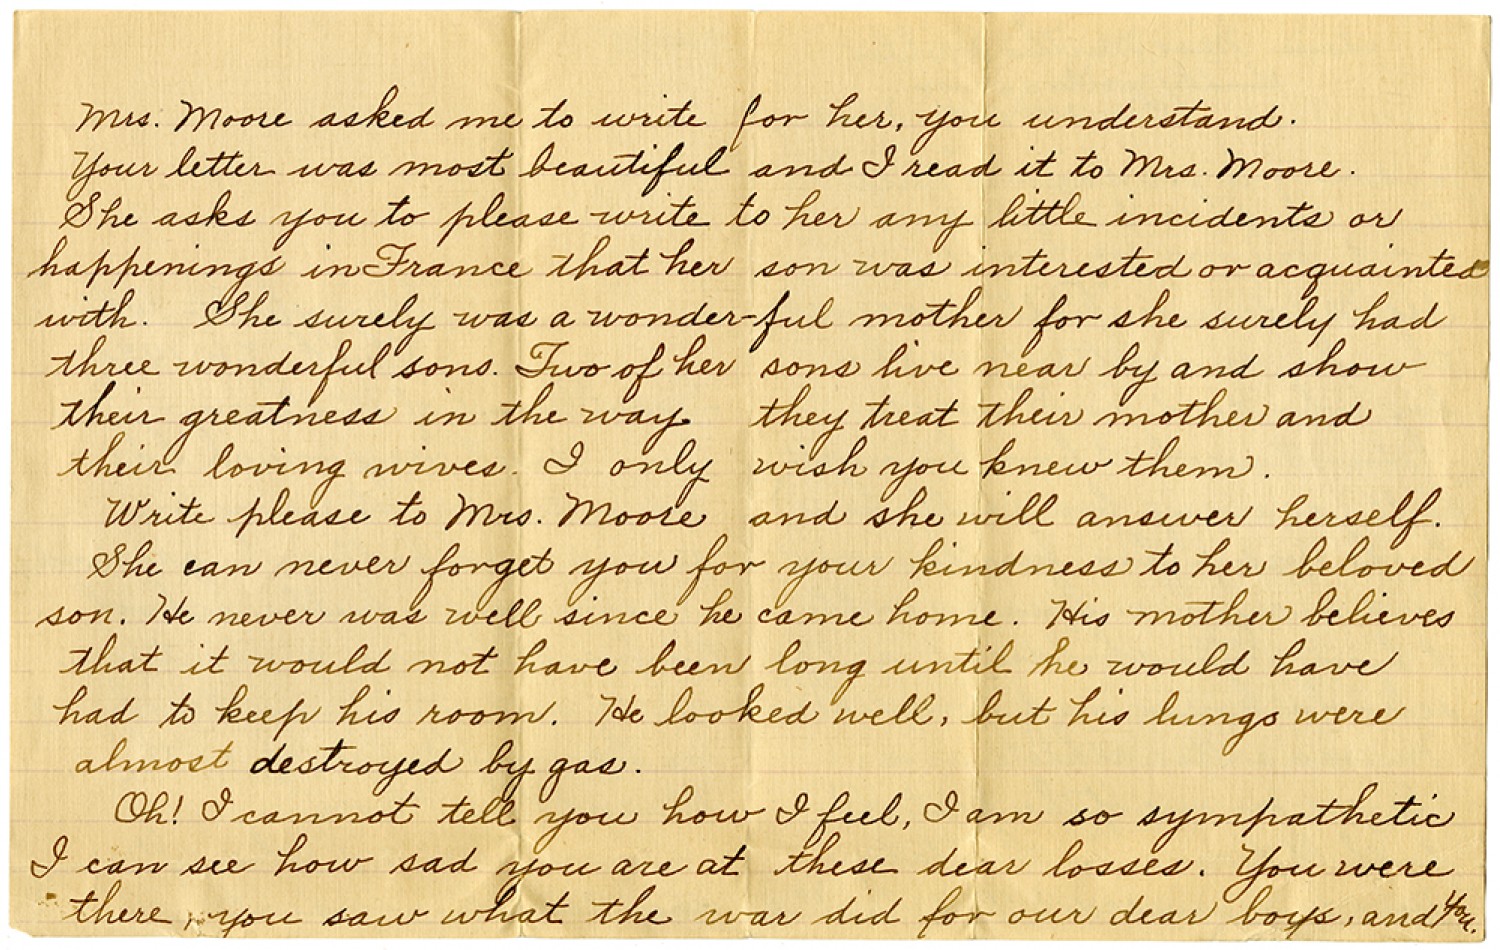 Mrs. Moore asked me to write for her, you understand.
Your letter was most beautiful and I read it to Mrs. Moore.
She asks you to please write to her any little incidents or
happenings in France that her son was interested or acquainted
with. She surely was a wonder-ful mother for she surely had
three wonderful sons. Two of her sons live near by and show
their greatness in the way they treat their mother and
their loving wives. I only wish you knew them.
Write please to Mrs. Moore and she will answer herself.
She can never forget you for your kindness to her beloved
son. He never was well since he came home. His mother believes
that it would not have been long until he would have
had to keep his room. He looked well, but his lungs were
almost destroyed by gas.
Oh! I cannot tell you how I feel, I am so sympathetic
I can see how sad you are at these dear losses. You were
there, you saw what the war did for our dear boys, and you.